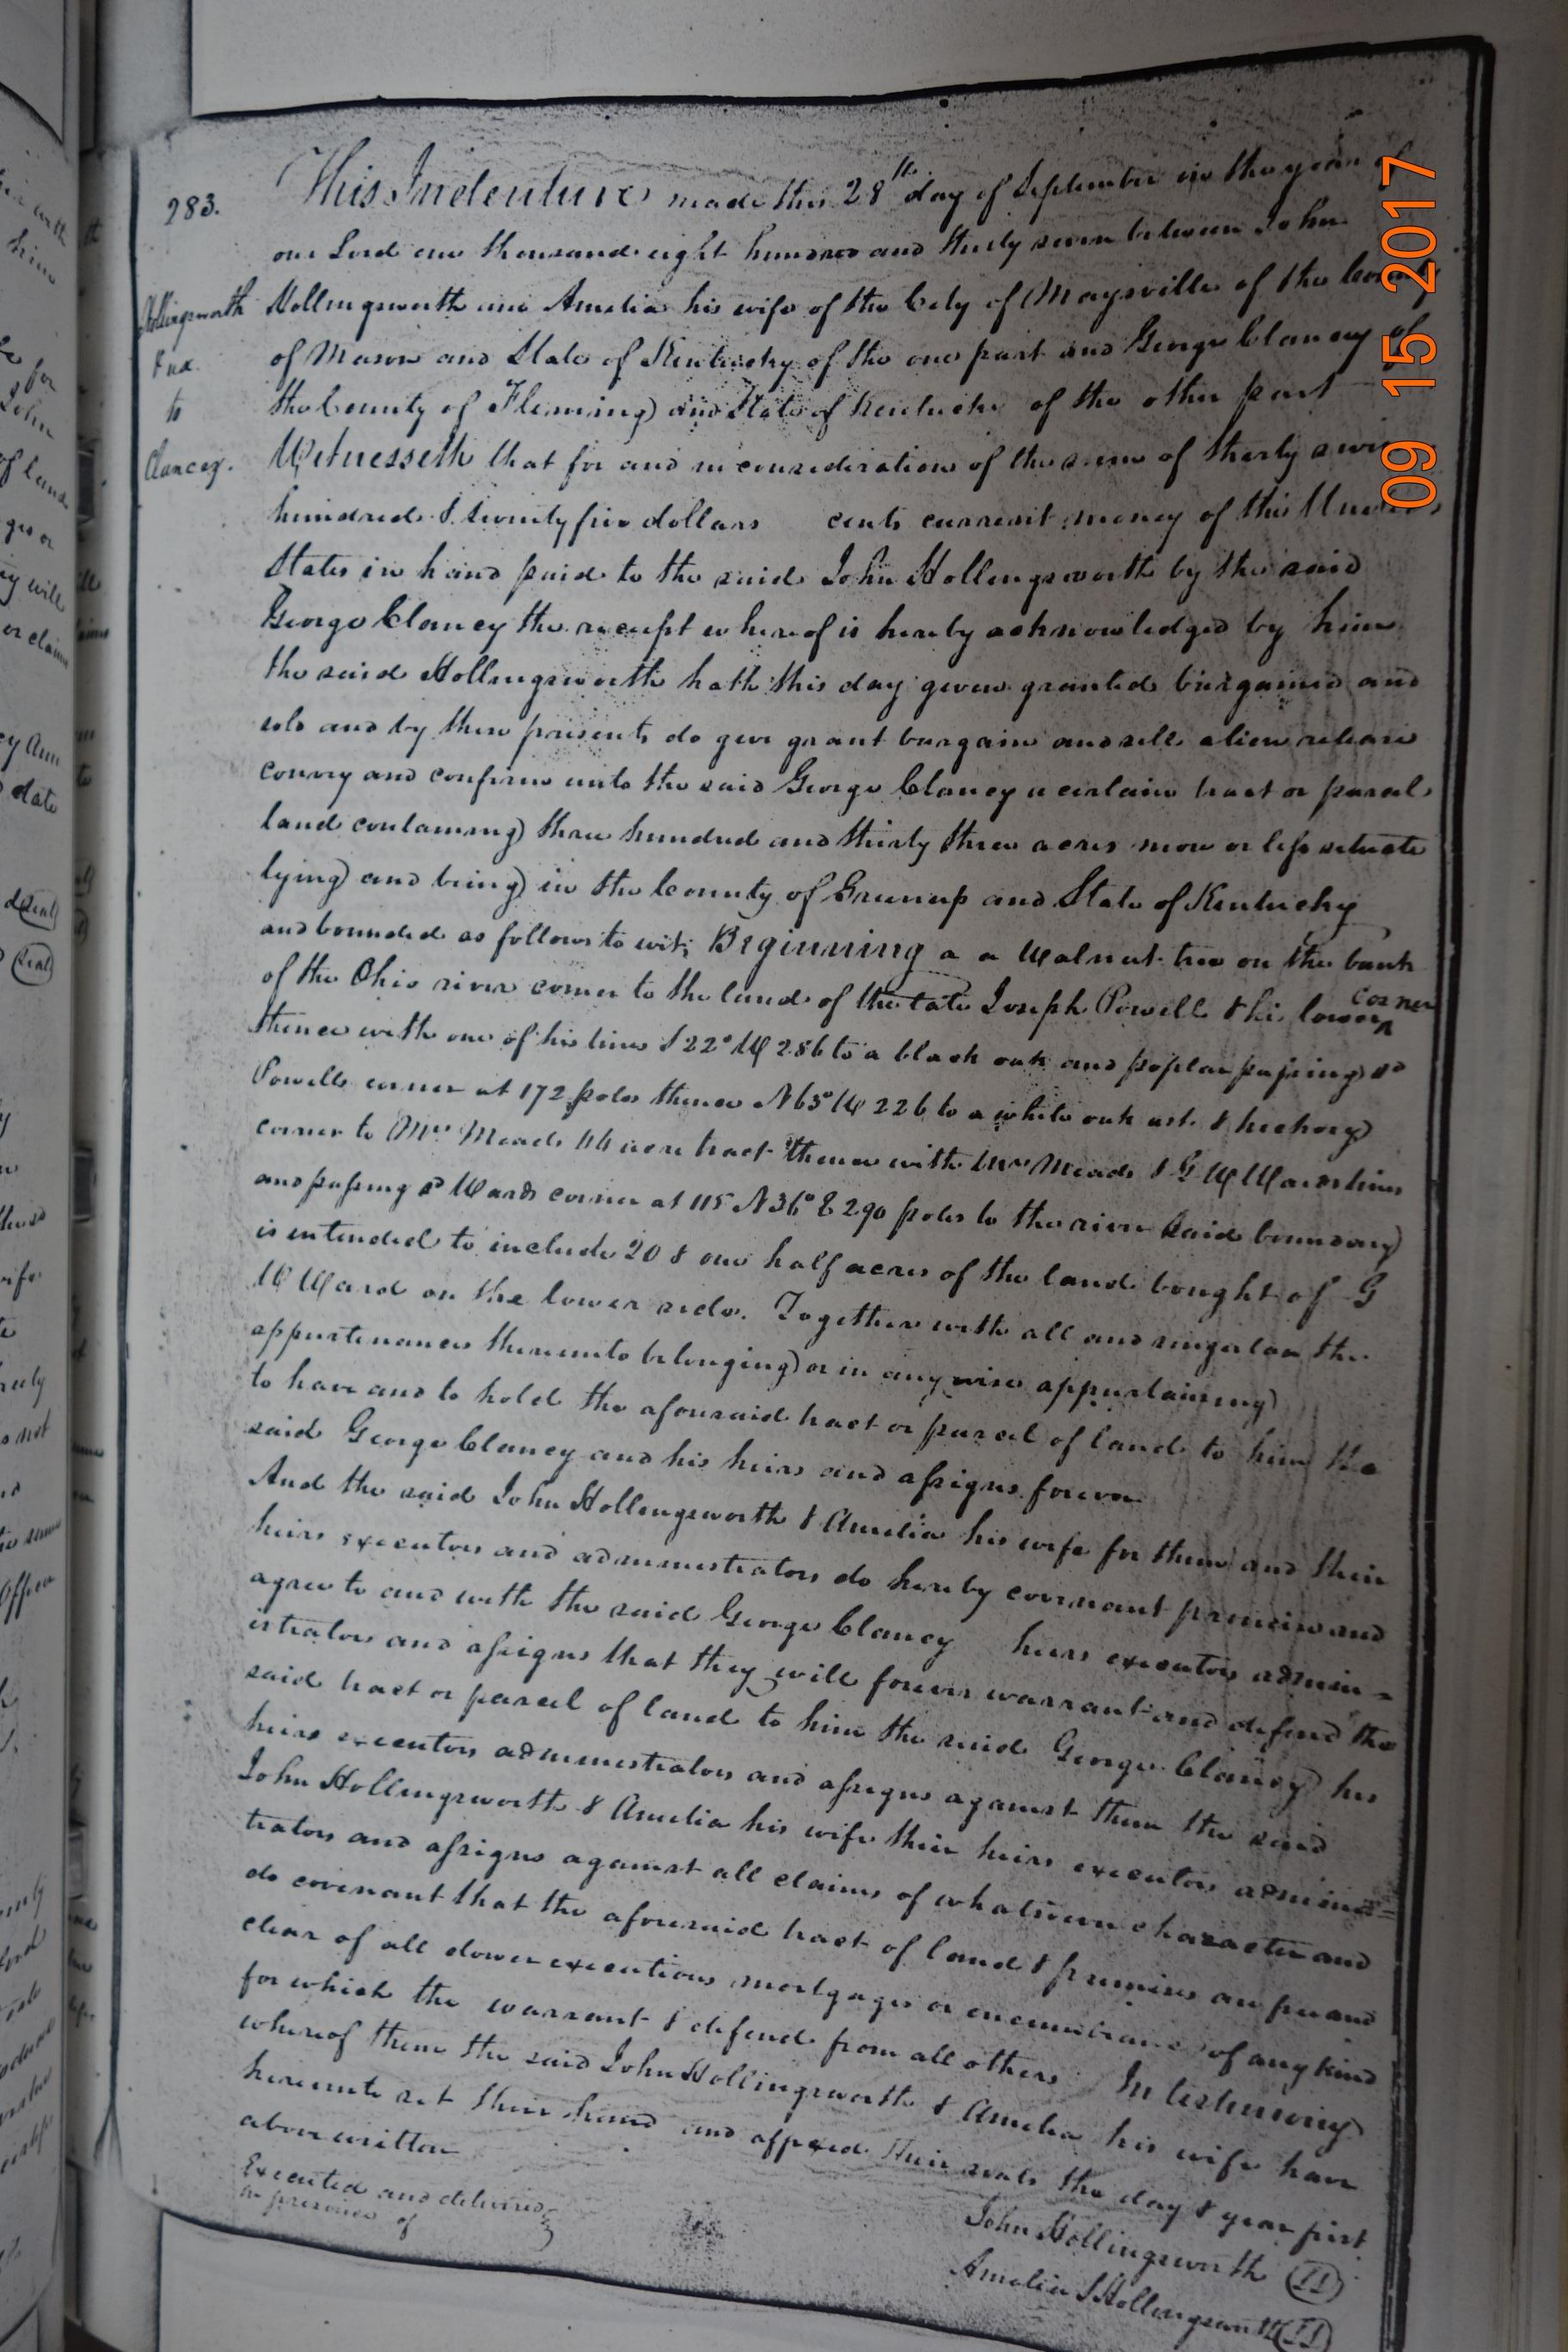 283.
Hollingsworth
&ux
to
Clancey.
This Indenture made this 28th day of September in the year of
our Lord one thousand eight hundred and thirty seven between John
Hollingsworth and Amelia his wife of the City of Maysville of the County
of Mason and State of Kentucky of the one part and George Clancey of
the County of Fleming and State of Kentucky of the other part
Witnesseth that for and in consideration of the sum of thirty
hundred & twenty five dollars cents current money of this United
States in hand paid to the said John Hollingsworth by the said
George Clancey the receipt whereof is hereby acknowledged by him
the said Hollingsworth hath this day given granted bargained and
sold and by these presents do give grant bargain and sell alien release
convey and confirm unto the said George Clancey a certain tract or parcel
land containing three hundred and thirty three acres more or less situate
lying and being in the County of Greenup and State of Kentucky
and bounded as follows to wit; Beginning a a Walnut tree on the bank
of the Ohio river corner to the land of the late Joseph Powell & his lower corner
thence with one of his lines S 22° W 286 to a black oak and poplar passing sd
Powells corner at 172 poles thence N 63° W 226 to a white oak ash & hickory
corner to Mrs Meads 44 acre tract thence with Mrs Meads & G W Wards lines
and passing sd Wards corner at 115 N 36° E 290 poles to the river said boundary
is intended to include 20 & one half acres of the land bought of G
W Ward on the lower side. Together with all and singular the
appurtenances thereunto belonging or in any wise appertaining
to have and to hold the aforesaid tract or parcel of land to him the
said George Clancey and his heirs and assigns forever
And the said John Hollingsworth & Amelia his wife for them and their
heirs executors and administrators do hereby covenant promise and
agree to and with the said George Clancey heirs executors admin=
istrators and assigns that they will forever warrant and defend the
said tract or parcel of land to him the said George Clancey his
heirs executors administrators and assigns against them the said
John Hollingsworth & Amelia his wife their heirs executors adminis=
trators and assigns against all claims of whatsoever character and
do covenant that the aforesaid tract of land & premises are free and
clear of all dower executions mortgages or encumbrance of any kind
for which the warrant & defend from all others In testimony
whereof them the said John Hollingsworth & Amelia his wife have
hereunto set their hand and affixed their seals the day & year first
above written
Executed and delivered
in presence of
John Hollingsworth
Amelia S Hollingsworth
09 15 2017